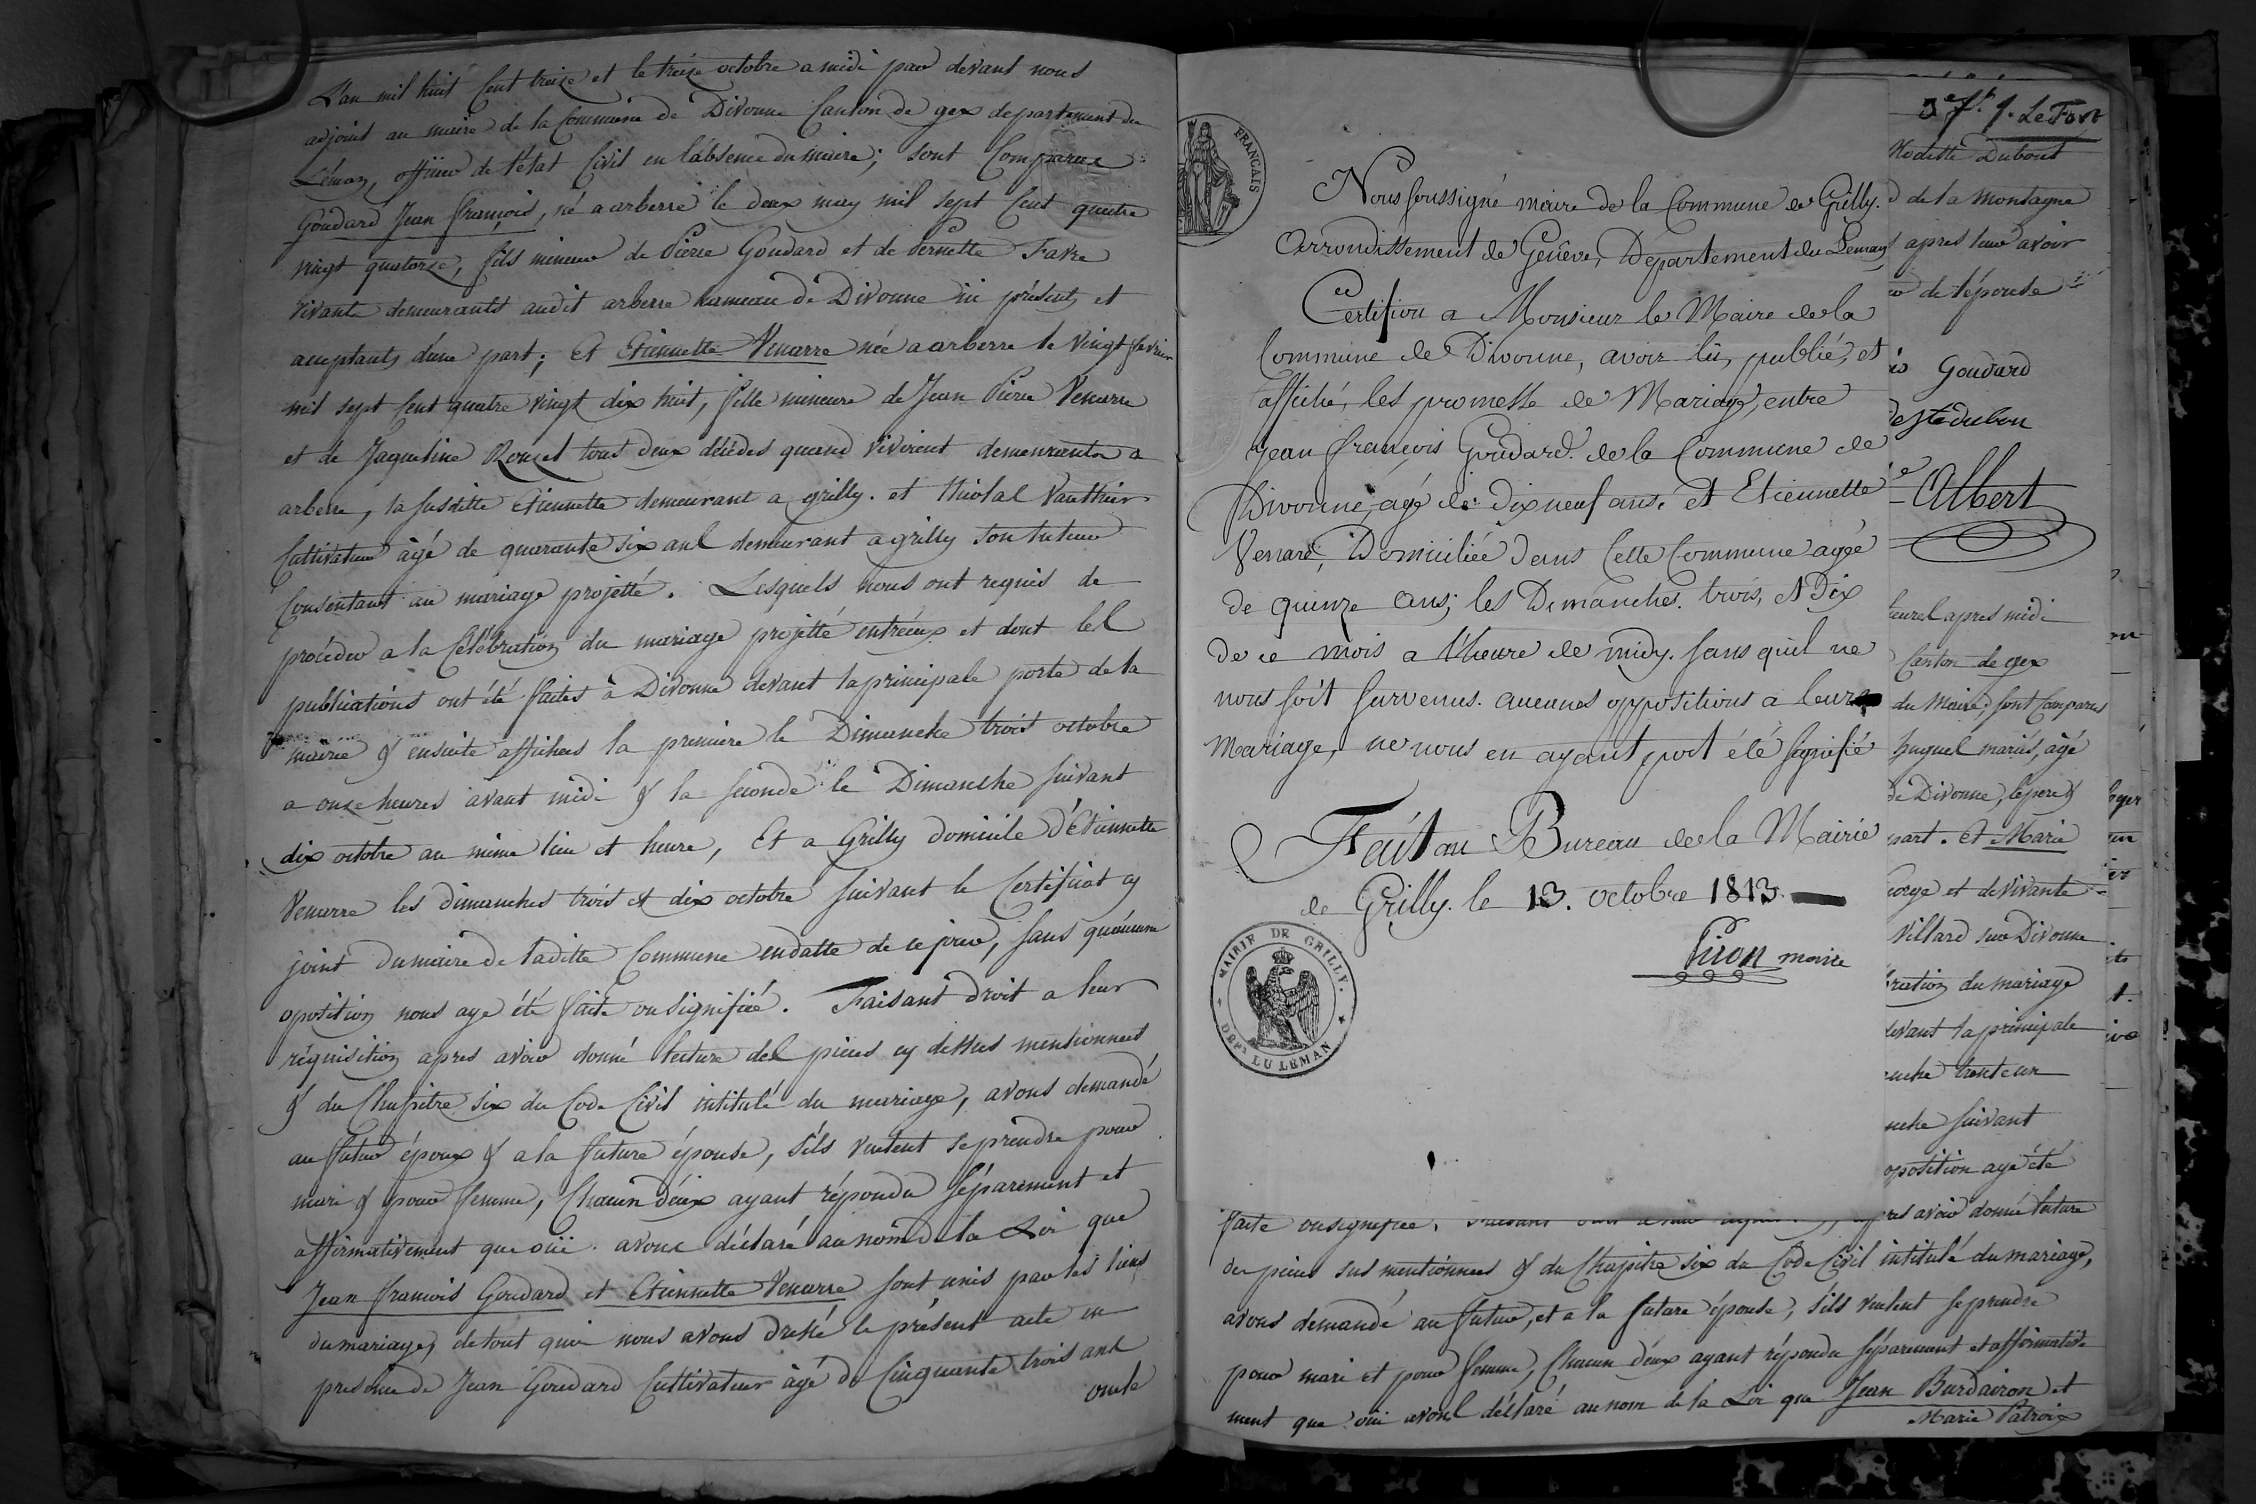 L'an mil huit Cent treize et le treize octobre a midi par devant nous
adjoint au maire de la Commune de Divonne Canton de gex departement du
Léman, officier de l'état Civil en l'absence du maire; sont Comparus
Goudard Jean françois, né a arberre le deux may mil sept Cent quatre
vingt quatorze, fils mineur de Pierre Goudard et de Pernette Favre
vivants demeurants audit arberre hameau de Divonne ici présents et
acceptants d'une part; Et Etiennette Venarre née a arberre le vingt fevrier
mil sept Cent quatre vingt dix huit, fille mineure de Jean Pierre Venarre
et de Jaqueline Rouget tous deux décédes quand vivoient demeurants a
arberre, la susditte Etiennette demeurant a grilly. et Nicolas Vauthier
Cultivateur âgé de quarante six ans demeurant a grilly son tuteur
Consentant au mariage projetté. Lesquels nous ont requis de
procéder a la Célébration du mariage projetté entr'eux et dont les
publications ont été faites à Divonne devant la principale porte de la
mairie & ensuite affichées la premiere le Dimanche trois octobre
a onze heures avant midi & la seconde le Dimanche suivant
dix octobre au même lieu et heure, Et a Grilly domicile d'Etiennette
Venarre les dimanches trois et dix octobre suivant le Certificat cy
joint du maire de laditte Commune en datte de ce jour, sans qu'aucune
oposition nous aye été faite ou signifiée. Faisant droit a leur
réquisition apres avoir donné lecture des pieces cy dessus mentionnées
& du Chapitre six du Code Civil intitulé du mariage, avons demandé
au futur époux & a la future épouse, s'ils veulent se prendre pour
mari & pour femme, Chacun d'eux ayant répondu séparement et
affirmativement que oüi. avons déclaré au nom de la Loi que
Jean francois Goudard et Etiennette Venarre sont unis par les liens
du mariage, de tout quoi nous avons dressé le présent acte en
presence de Jean Goudard Cultivateur âgé de Cinquante trois ans
oncle
FRANÇAIS
Nous soussigné maire de la Commune de Grilly.
Arrondissement de Genêve, Departement du Leman
Certifion a Monsieur le Maire de la
Commune de Divonne, avoir lû, publié, et
affiché, les promesse de Mariage, entre
Jean françois Goudard. de la Commune de
Divonne, agé de dix neuf ans. et Etiennette
Venard, Domiciliée dans Cette Commune agée
de quinze ans; les Dimanches. trois, et Dix
de ce mois a l'heure de midy. sans qu'il ne
nous soit survenus. aucunes oppositions a leur
Mariage, ne nous en ayant point été signifié
Fait au Bureau de la Mairie
de Grilly. le 13. octobre 1813.
maire
MAIRIE DE GRILLY.
DÉPT. DU LÉMAN
J. LeFort
Modeste Dubout
de la montagne
apres leur avoir
de l'épouse
Goudard
Albert
heures apres midi
Canton de gex
du Maire; sont Comparus
huguel mariés, âgé
de Divonne, le pere &
part. et Marie
George et de vivante
Villard sur Divonne
bration du mariage
devant la principale
anche trente un
anche suivant
oposition aye été
faite ou signifiée, apres avoir donné lecture
des pieces sus mentionnées & du Chapitre six du Code Civil intitulé du mariage,
avons demandé au futur, et a la future épouse, s'ils veulent se prendre
pour mari et pour femme, Chacun d'eux ayant répondu séparement et affirmative
ment que oüi avons déclaré au nom de la Loi que Jean Burdairon et
Marie Patroix